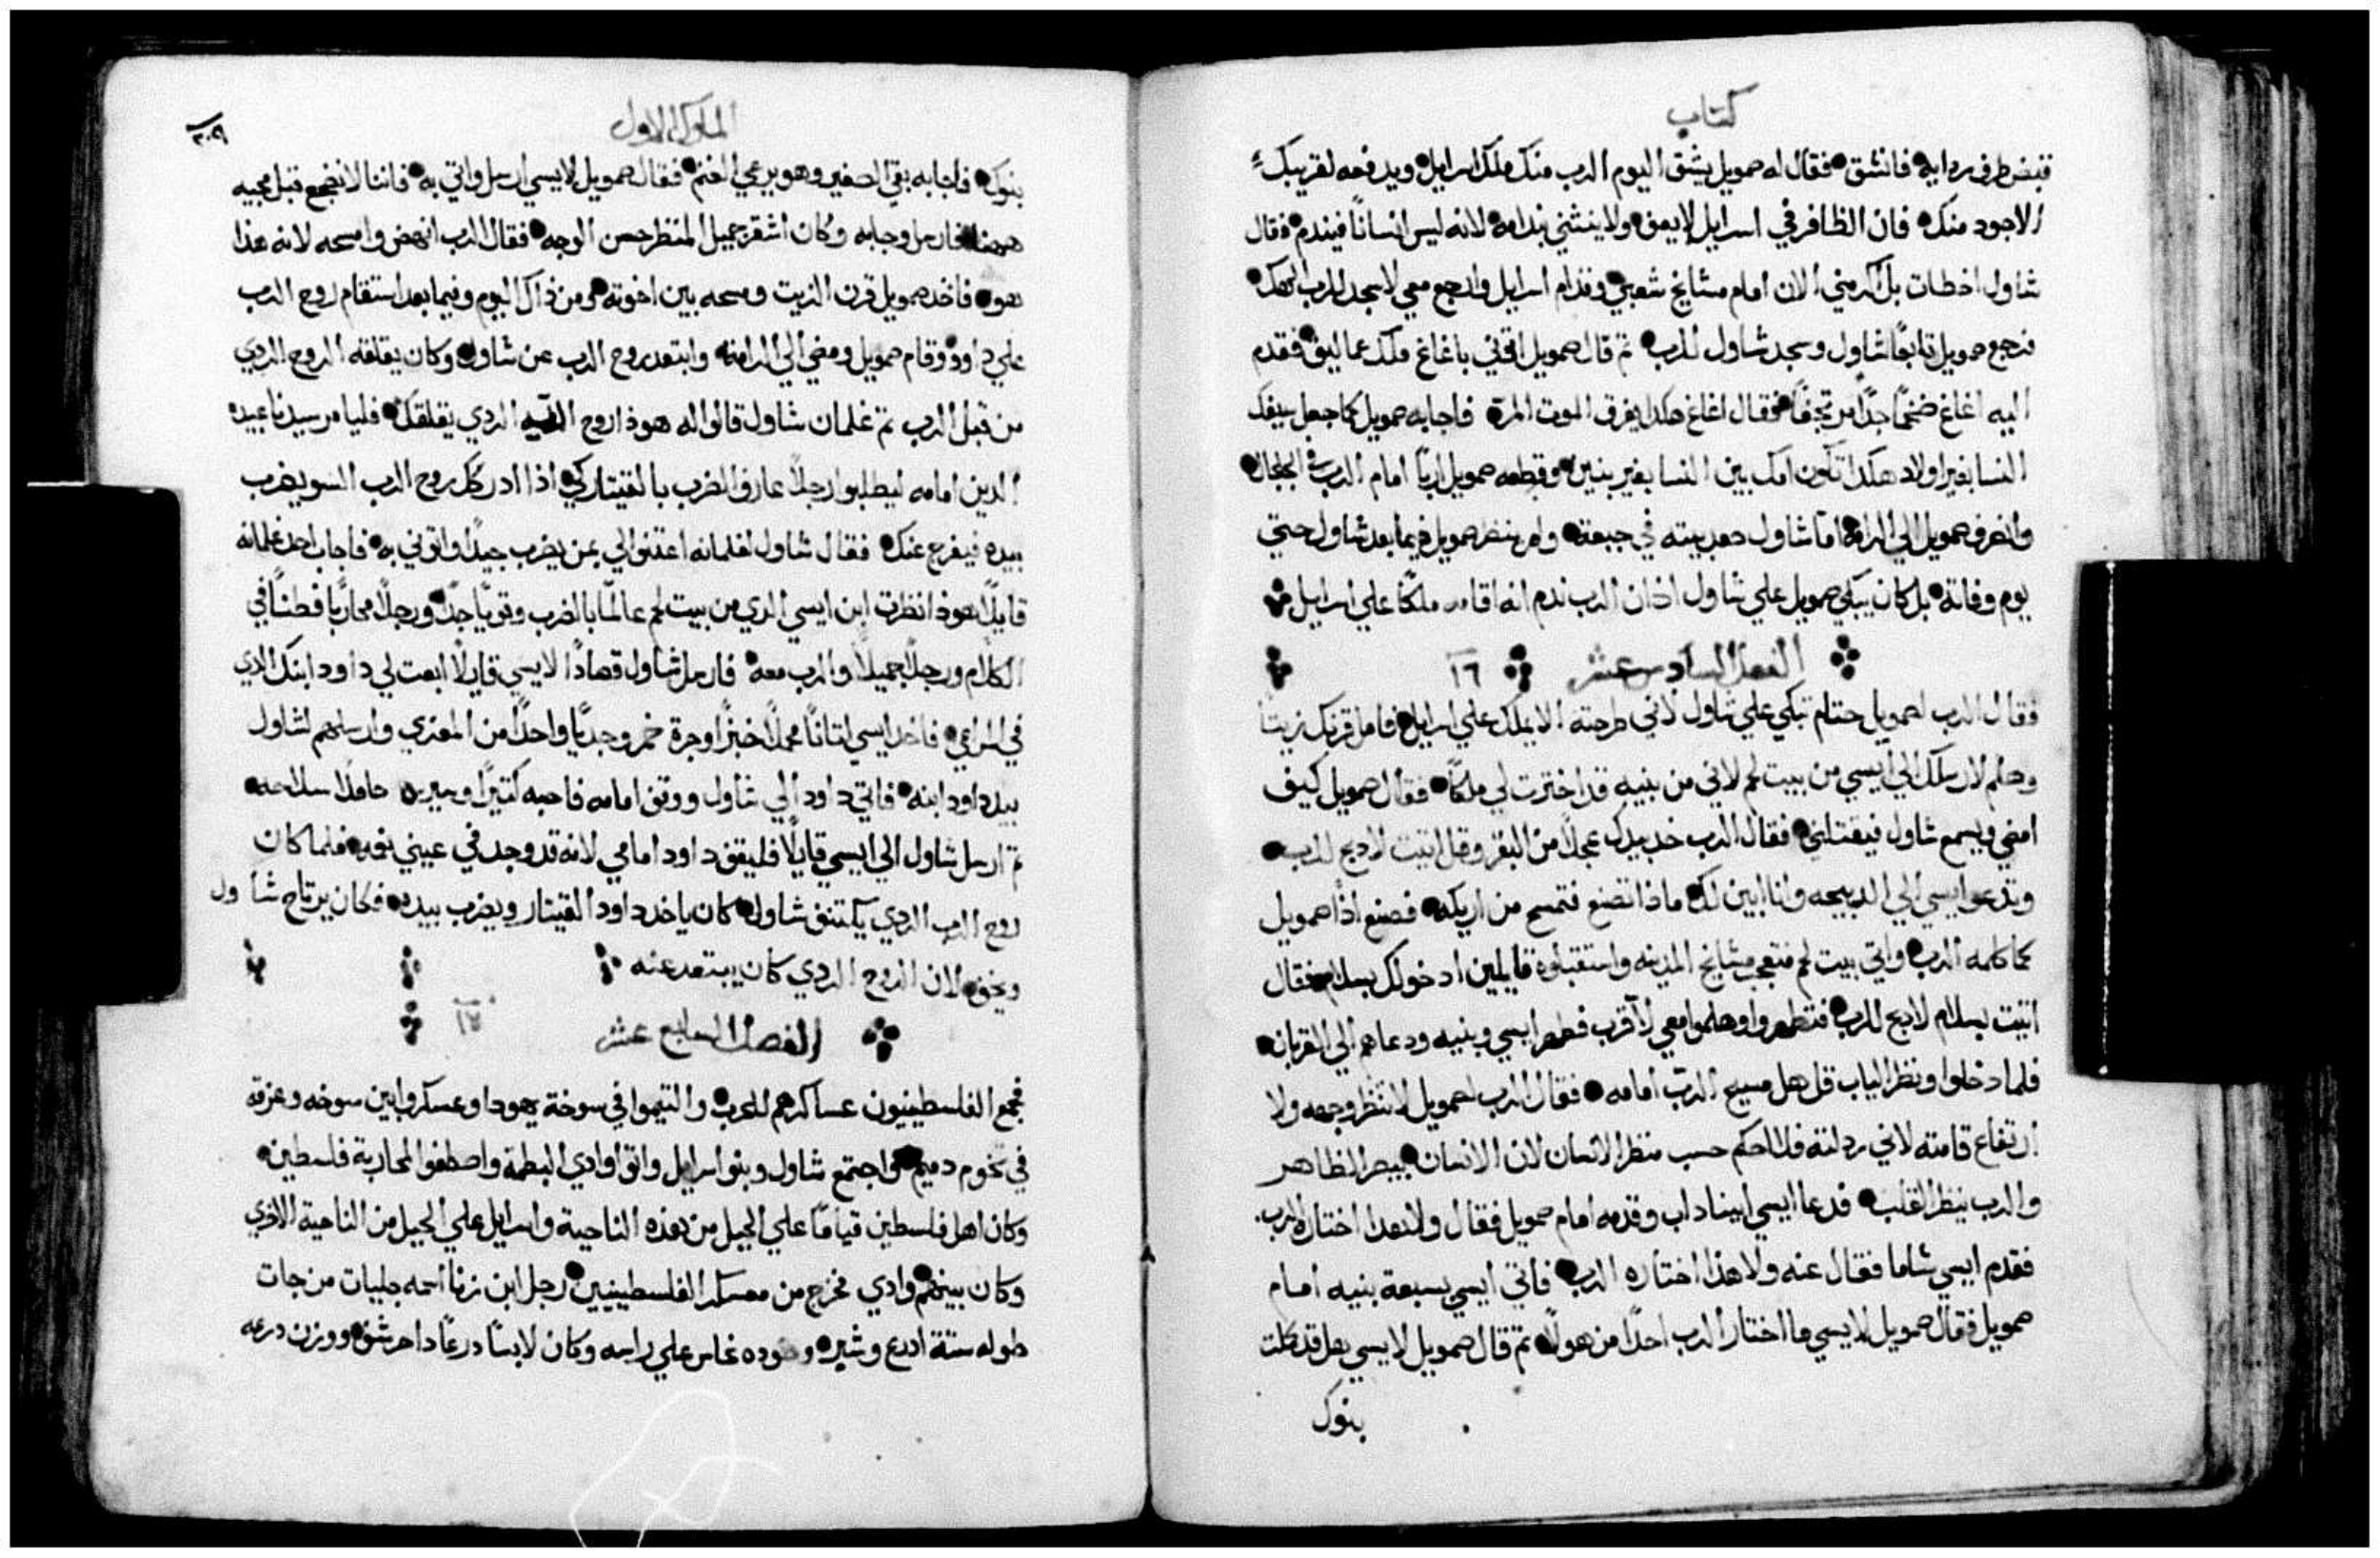 كتاب
فقبض طرف ردايه فانشق فقال له صمويل يشق اليوم الرب منك ملك اسرايل ويدفعه لقريبك
الاجود منك فان الظافر في اسرايل لا يعفو ولا ينثني بندامه لانه ليس انسانًا فيندم فقال
شاول اخطات بل اكرمني الان امام مشايخ شعبي وقدام اسرايل وارجع معي لاسجد للرب الهك
فرجع صمويل تابعًا شاول وسجد شاول للرب ثم قال صمويل اتوني باغاغ ملك عماليق فقدم
اليه اغاغ ضخمًا جدًا مرتجفًا فقال اغاغ هكدا يفرق الموت المر فاجابه صمويل كما جعل سيفك
النسا بغير اولاد هكدا تكون امك بين النسا بغير بنين وقطعه صمويل اربًا امام الرب في الجلجال
وانصرف صمويل الي الرامة اما شاول صعد بيته في جبعة ولم ينظر صمويل فيما بعد شاول حتي
يوم وفاته بل كان يبكي صمويل علي شاول اذ ان الرب ندم انه اقامه ملكًا علي اسرايل
الفصل السادس عشر ١٦
فقال الرب لصمويل حتام تبكي علي شاول لاني طرحته الا يملك علي اسرايل فاملا قرنك زيتا
وهلم لارسلك الي ايسي من بيت لحم لاني من بنيه قد اخترت لي ملكًا فقال صمويل كيف
امضي ويسمع شاول فيقتلني فقال الرب خد بيدك عجلًا من البقر وقل اتيت لادبح للرب
وتدعو ايسي الي الدبيحه وانا ابين لك ماذا تصنع فتمسح من اريكه فصنع اذًا صمويل
كما كلمه الرب واتي بيت لحم فتعجب مشايخ المدينه واستقبلوه قايلين ادخولك بسلام فقال
اتيت بسلام لادبح للرب فتطهروا وهلموا معي لاقرب فطهر ايسي وبنيه ودعاهم الي القربان
فلما دخلوا ونظر الياب قل هل مسيح الرب امامه فقال الرب لصمويل لا تنظر وجهه ولا
ارتفاع قامته لاني ردلته فلا احكم حسب منظر الانسان لان الانسان يبصر الظاهر
والرب ينظر القلب فدعا ايسي ابيناداب وقدمه امام صمويل فقال ولا هدا اختاره الرب
فقدم ايسي شاما فقال عنه ولا هذا اختاره الرب فاتي ايسي بسبعة بنيه امام
صمويل فقال صمويل لايسي ما اختار الرب احدًا من هولا ثم قال صمويل لايسي هل قد كملت
بنوك
الملوك الاول
٣٠٩
بنوك فاجابه بقي الصغير وهو يرعي الغنم فقال صمويل لايسي ارسل واتي به فاننا لا نضجع قبل مجيه
ههنا فارسل وجابه وكان اشقر جميل المنظر حسن الوجه فقال الرب انهض وامسحه لانه هذا
هو فاخد صمويل قرن الزيت ومسحه بين اخوته ومن ذاك اليوم وفيما بعد استقام روح الرب
علي داود وقام صمويل ومضي الي الرامة وابتعد روح الرب عن شاول وكان يقلقه الروح الردي
من قبل الرب ثم غلمان شاول قالوا له هوذا روح الردي يقلقك فليامر سيدنا عبيده
الدين امامه ليطلبوا رجلًا عارف الضرب بالقيتار كي اذا ادركك روح الرب السو يضرب
بيده فيفرج عنك فقال شاول لغلمانه اعتنوا لي بمن يضرب جيدًا واتوني به فاجاب احد غلمانه
قايلًا هوذا نظرت ابن ايسي الدي من بيت لحم عالمًا بالضرب وقويًا جدًا ورجلًا محاربًا فطنًا في
الكلام ورجلًا جميلًا والرب معه فارسل شاول قصادًا لايسي قايلًا ابعت لي داود ابنك الدي
في المراعي فاخد ايسي اتانًا محملًا خبزًا وجرة خمر وجديًا واحدًا من المعزي وارسلهم لشاول
بيد داود ابنه فاتي داود الي شاول ووقف امامه فاحبه كثيرًا وصيره حاملًا سلاحه
ثم ارسل شاول الي ايسي قايلًا فليقف داود امامي لانه قد وجد في عيني نعمه فلما كان
روح الرب الردي يكتنف شاول كان ياخد داود القيتار ويضرب بيده فكان يرتاح شاول
ويخف لان الروح الردي كان يبتعد عنه
الفصل السابع عشر ١٧
فجمع الفلسطينيون عساكرهم للحرب والتيموا في سوخة يهودا وعسكروا بين سوخه وعزقه
في تخوم دميم واجتمع شاول وبنو اسرايل واتوا وادي البطمة واصطفوا لمحاربة فلسطين
وكان اهل فلسطين قيامًا علي الجبل من هذه الناحية واسرايل علي الجبل من الناحية الاخري
وكان بينهم وادي فخرج من معسكر الفلسطينيين رجل ابن زنا اسمه جليات من جات
طوله ستة ادرع وشبر وخوده نحاس علي راسه وكان لابسًا درعًا داحرشف ووزن درعه